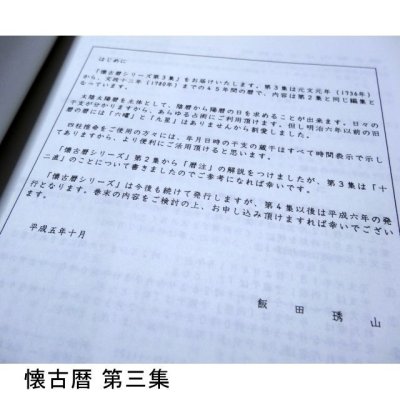 はじめに
「懐古暦シリーズ第3集」をお届けいたします。第3集は元文元年(1736年)
から、文政十三年(1780年)までの45年間の暦で、内容は第2集と同じ編集と
なっています。
太陰太陽暦を主体として、陰暦から陽暦の日を求めることが出来ます。日々の
干支が分かりますから、あらゆる占術にご利用頂けます。但し明治六年以前の旧
暦の暦には「六曜」と「九星」はありませんから割愛しました。
四柱推命をご使用の方々には、年月日時の干支の蔵干はすべて時間表示で示し
てありますから、より便利にご活用頂けると思います。
「懐古暦シリーズ」第2集から「暦注」の解説をつけましたが、第3集は「十
二道」のことについて書きましたのでご参考になれば幸いです。
「懐古暦シリーズ」は今後も続けて発行しますが、第4集以後は平成六年の発
行となります。巻末の内容をご検討の上、お申し込み頂けますれば幸いでござい
ます。
平成五年十月
飯田琇山
懐古暦 第三集